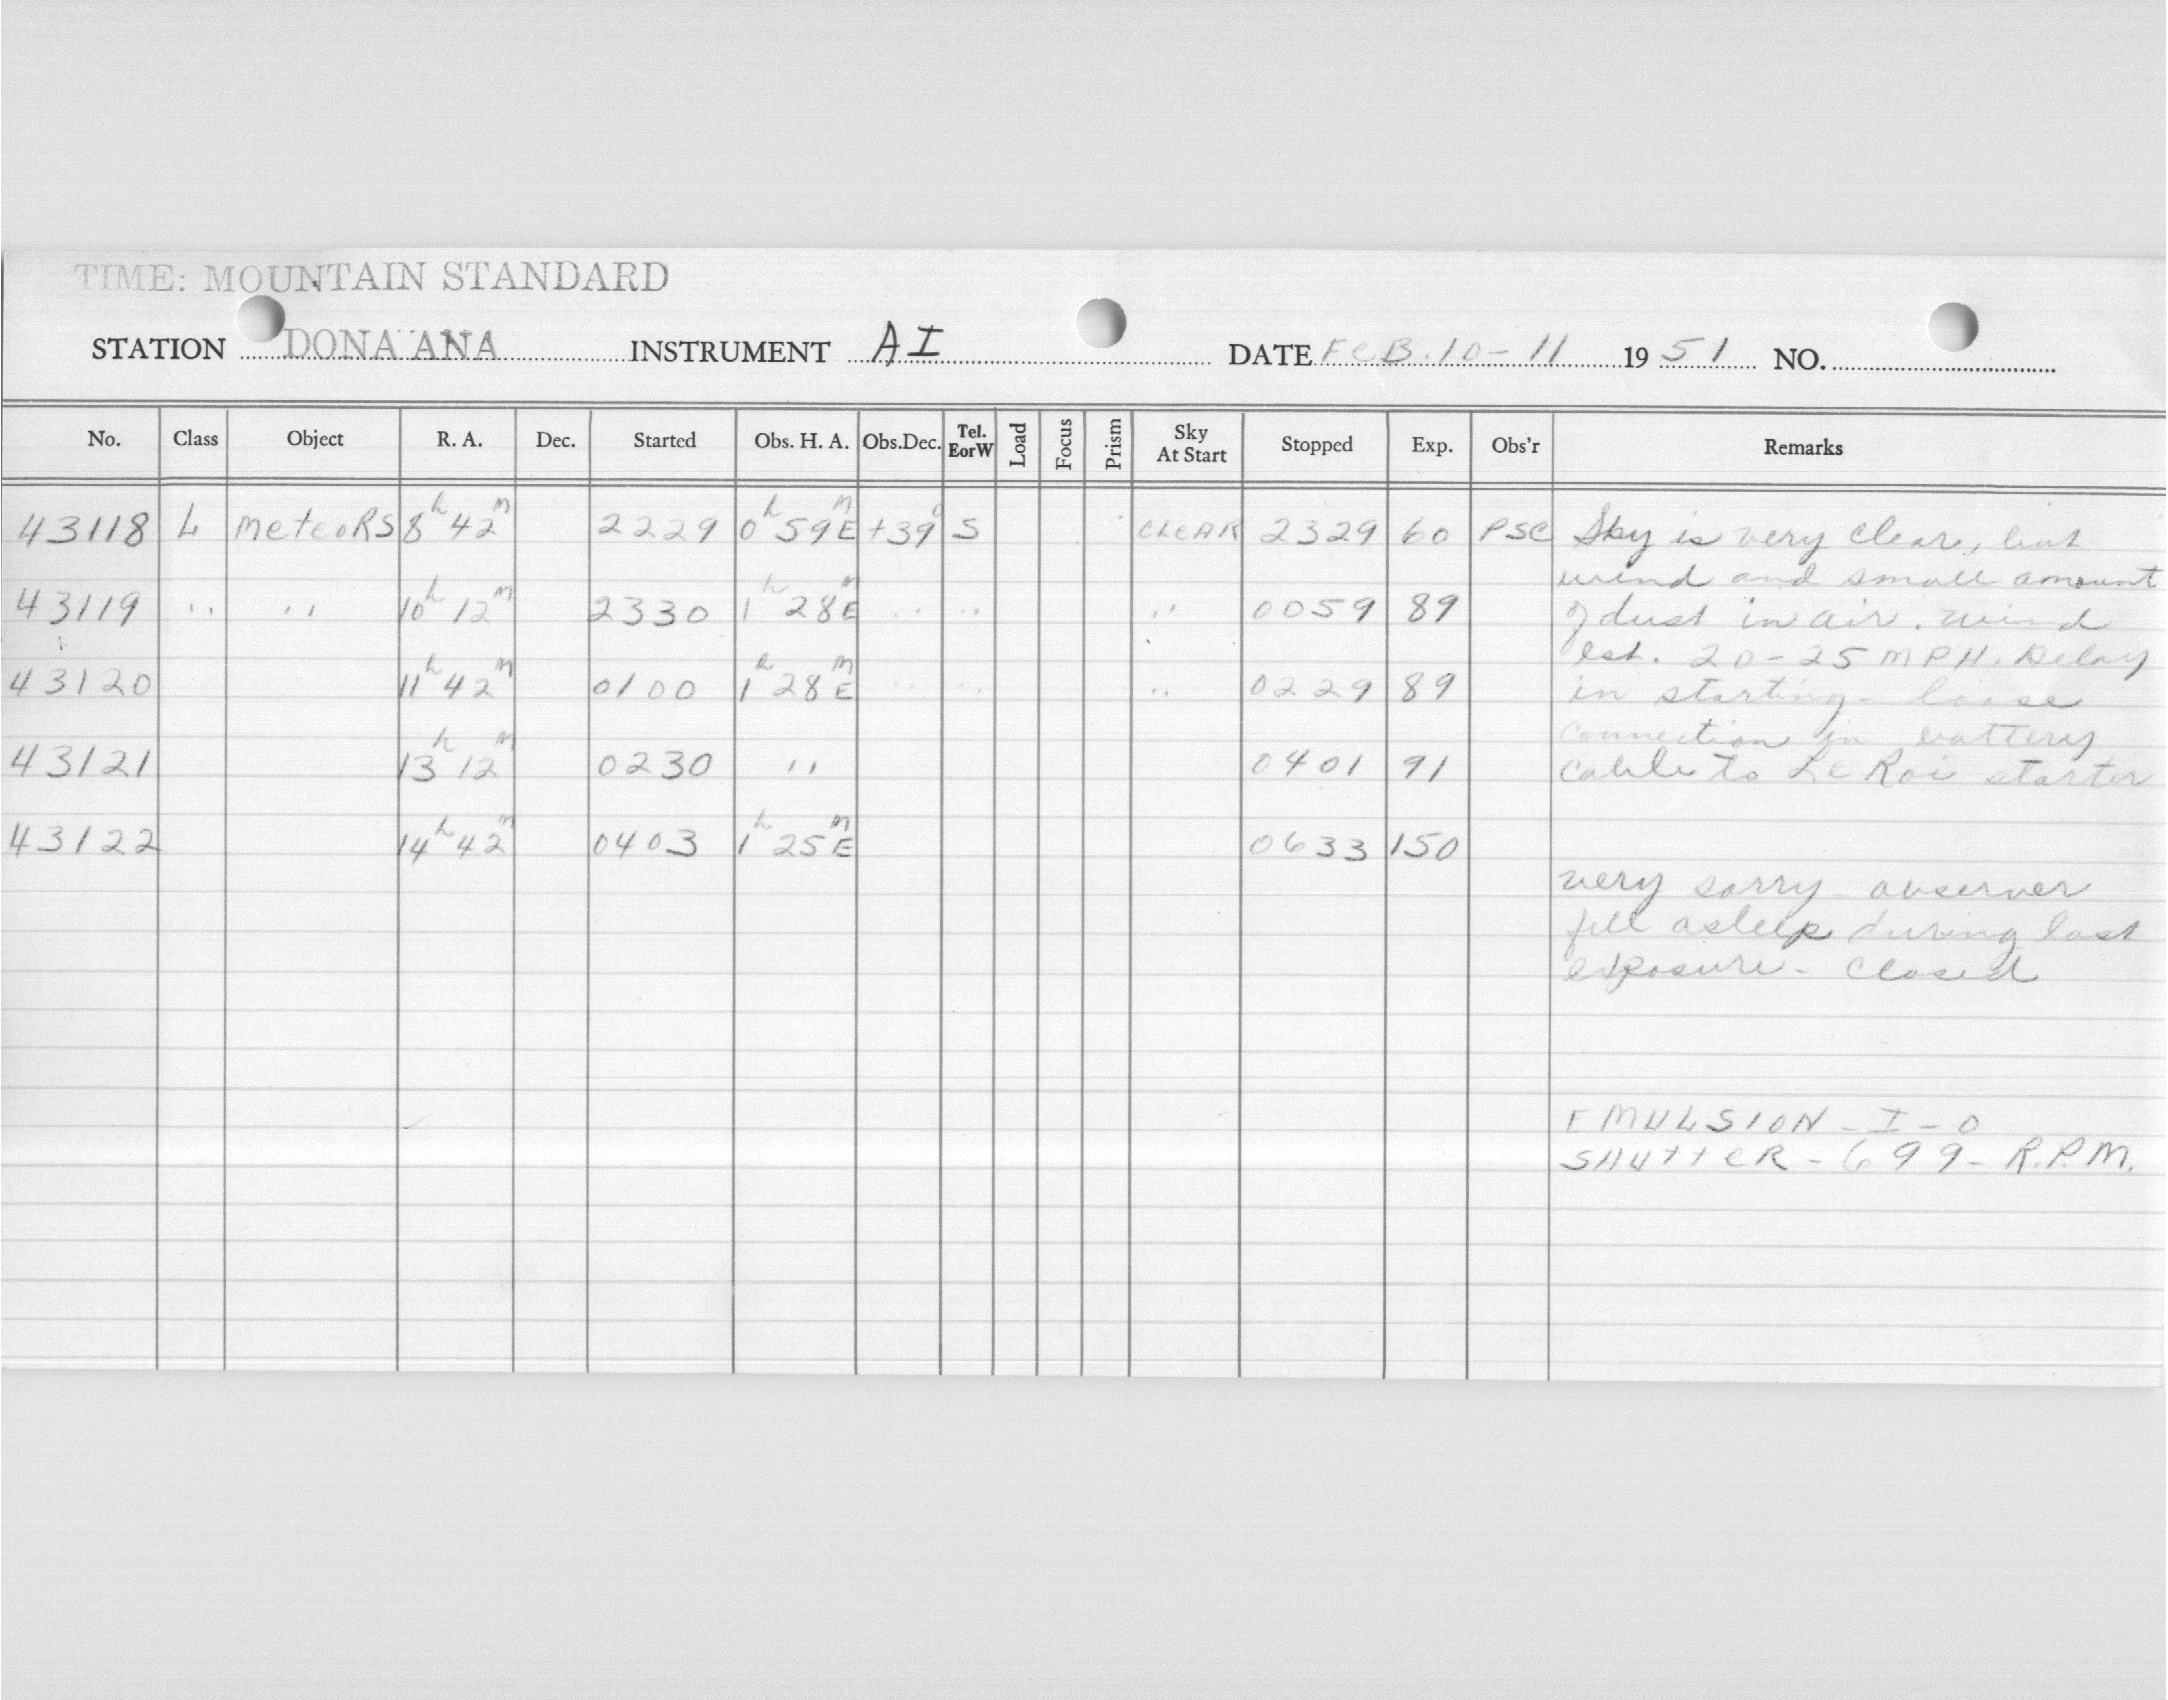 TIME: MOUNTAIN STANDARD
STATION DONA ANA INSTRUMENT AI DATE FEB. 10-11 1951 NO.
No. Class Object R. A. Dec. Started Obs. H. A. Obs.Dec. Tel. EorW Load Focus Prism Sky At Start Stopped Exp. Obs'r Remarks
43118 L MeteoRS 8h 42m 2229 0h 59m E +39° S CLEAR 2329 60 PSC Sky is very clear, but
wind and small amount
43119 '' '' 10h 12m 2330 1h 28m E '' '' '' 0059 89 of dust in air. wind
est. 20-25 MPH. Delay
43120 11h 42m 0100 1h 28m E '' '' '' 0229 89 in starting - loose
connection in battery
43121 13h 12m 0230 '' 0401 91 cable to Le Roi starter
43122 14h 42m 0403 1h 25m E 0633 150
very sorry observer
fell asleep during last
exposure - closed
EMULSION - I - O
SHUTTER - 699 - R.P.M.